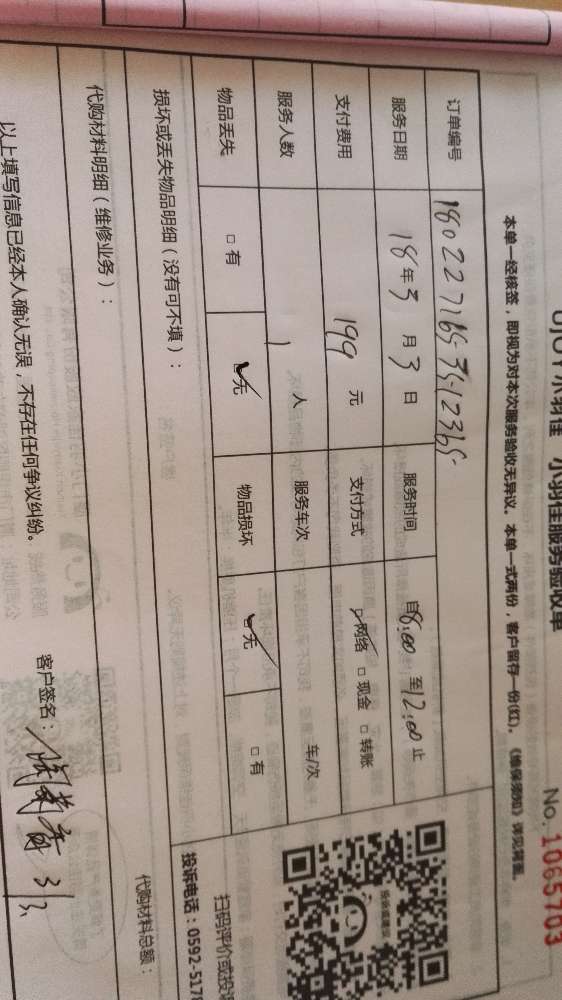 小羽佳服务验收单
No. 1065703
本单一经核签，即视为对本次服务验收无异议。本单一式两份，客户留存一份(红)。《维保须知》详见背面。
订单编号 1802271653512365
服务日期 18年3月3日 服务时间 自8:00至12:00止
支付费用 199元 支付方式 网络 现金 转账
服务人数 1人 服务车次 车/次
物品丢失 有 无 物品损坏 无 有
损坏或丢失物品明细（没有可不填）：
代购材料明细（维修业务）：
代购材料总额：
扫码评价或投诉
投诉电话：0592-5178
以上填写信息已经本人确认无误，不存在任何争议纠纷。
客户签名： 3/3